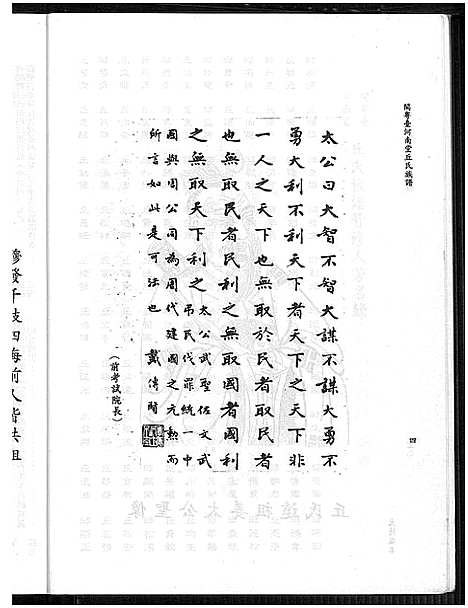 閩粵臺河南堂丘氏族譜
四
太公曰大智不智大謀不謀大勇不
勇大利不利天下者天下之天下非
一人之天下也無取於民者取民者
也無取民者民利之無取國者國利
之無取天下者天下利之太公武聖佐文武
弔民伐罪統一中
國與周公同為周代建國之元勲而
所言如此是可法也 戴傳賢
(前考試院長)
丘氏遠祖姜太公聖像
繆發千枝四海前人皆共祖